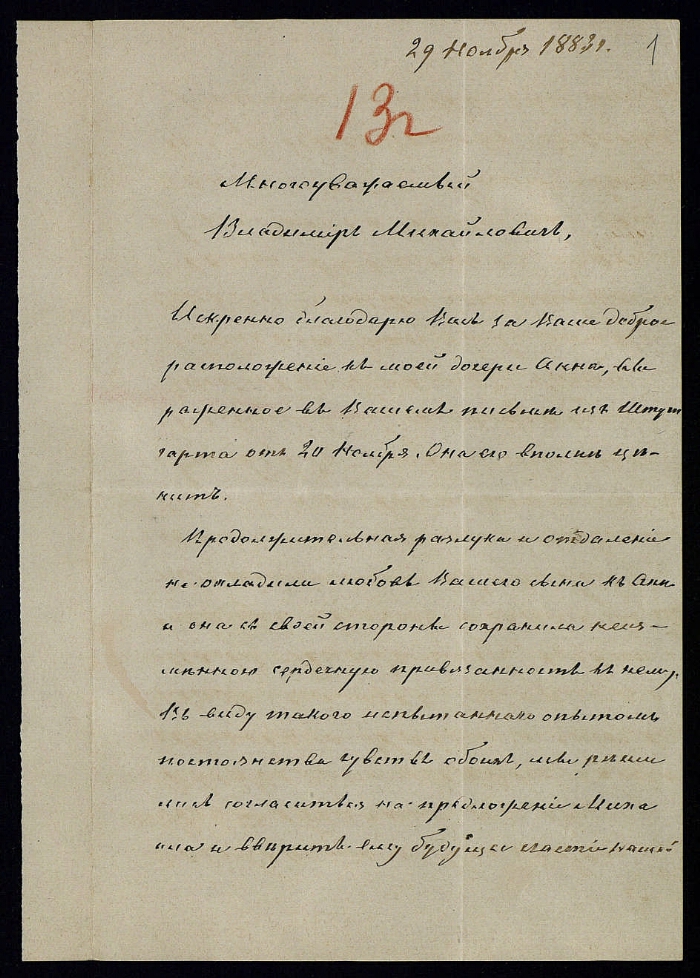 29 Ноября 1883 г.
1
13 г
Многоуважаемый
Владиміръ Михайловичъ,
Искренно благодарю Васъ за Ваше доброе
расположеніе къ моей дочери Аннѣ, вы
раженное въ Вашемъ письмѣ изъ Штут
гарта отъ 20 Ноября. Она его вполнѣ цѣ-
нитъ.
Продолжительная разлука и отдаленіе
не охладили любовь Вашего сына къ Аннѣ
и она съ своей стороны сохранила неиз-
мѣнною сердечную привязанность къ нему.
Въ виду такого испытаннаго опытомъ
постоянства чувствъ обоихъ, мы рѣши
лись согласиться на предложеніе Миха
ила и ввѣрить ему будущее счастіе нашей